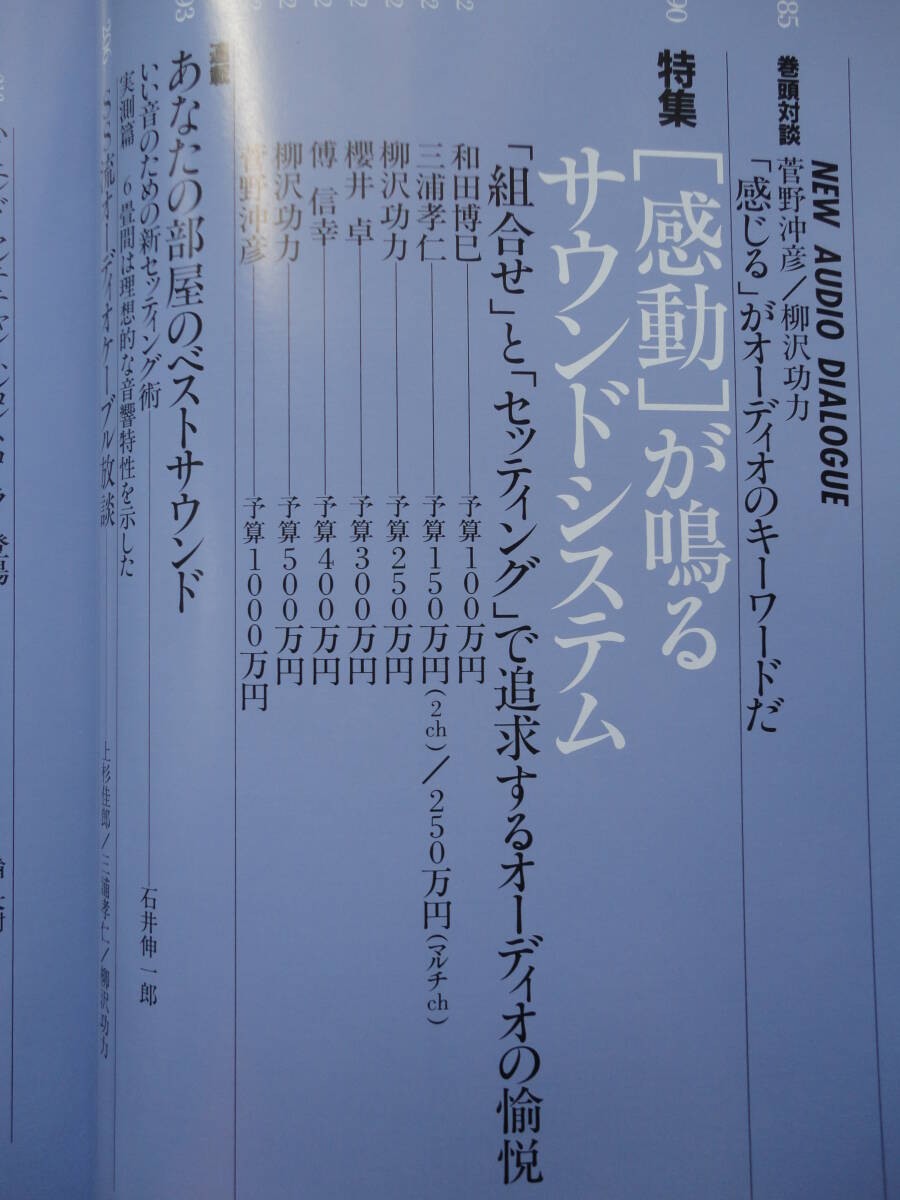 NEW AUDIO DIALOGUE
85
巻頭対談
菅野沖彦／柳沢功力
「感じる」がオーディオのキーワードだ
90
特集
［感動］が鳴る
サウンドシステム
「組合せ」と「セッティング」で追求するオーディオの愉悦
和田博巳 予算100万円
三浦孝仁 予算150万円（2ch）／250万円（マルチch）
柳沢功力 予算250万円
櫻井 卓 予算300万円
傅 信幸 予算400万円
柳沢功力 予算500万円
菅野沖彦 予算1000万円
93
連載
あなたの部屋のベストサウンド
いい音のための新セッティング術 石井伸一郎
実測篇 6畳間は理想的な音響特性を示した
流オーディオケーブル放談 上杉佳郎／三浦孝仁／柳沢功力